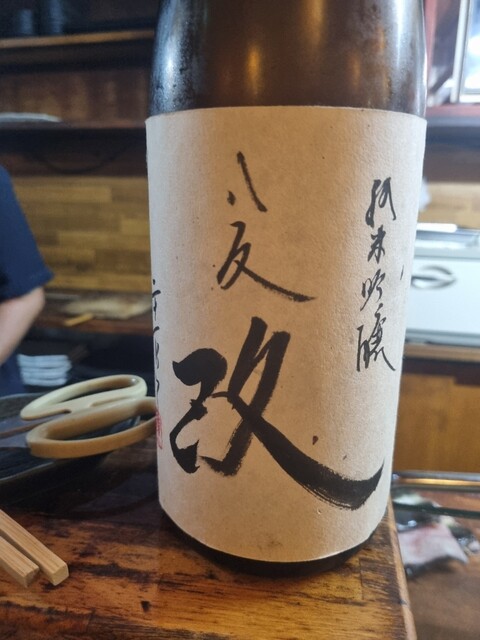 純米吟醸
八反
改